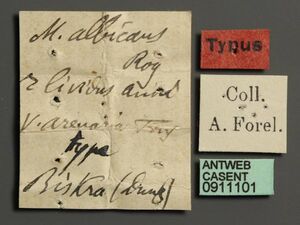 M. albicans
Rog
r lividus
v. arenaria For
type
Biskra
Typus
Coll.
A. Forel.
ANTWEB
CASENT
0911101